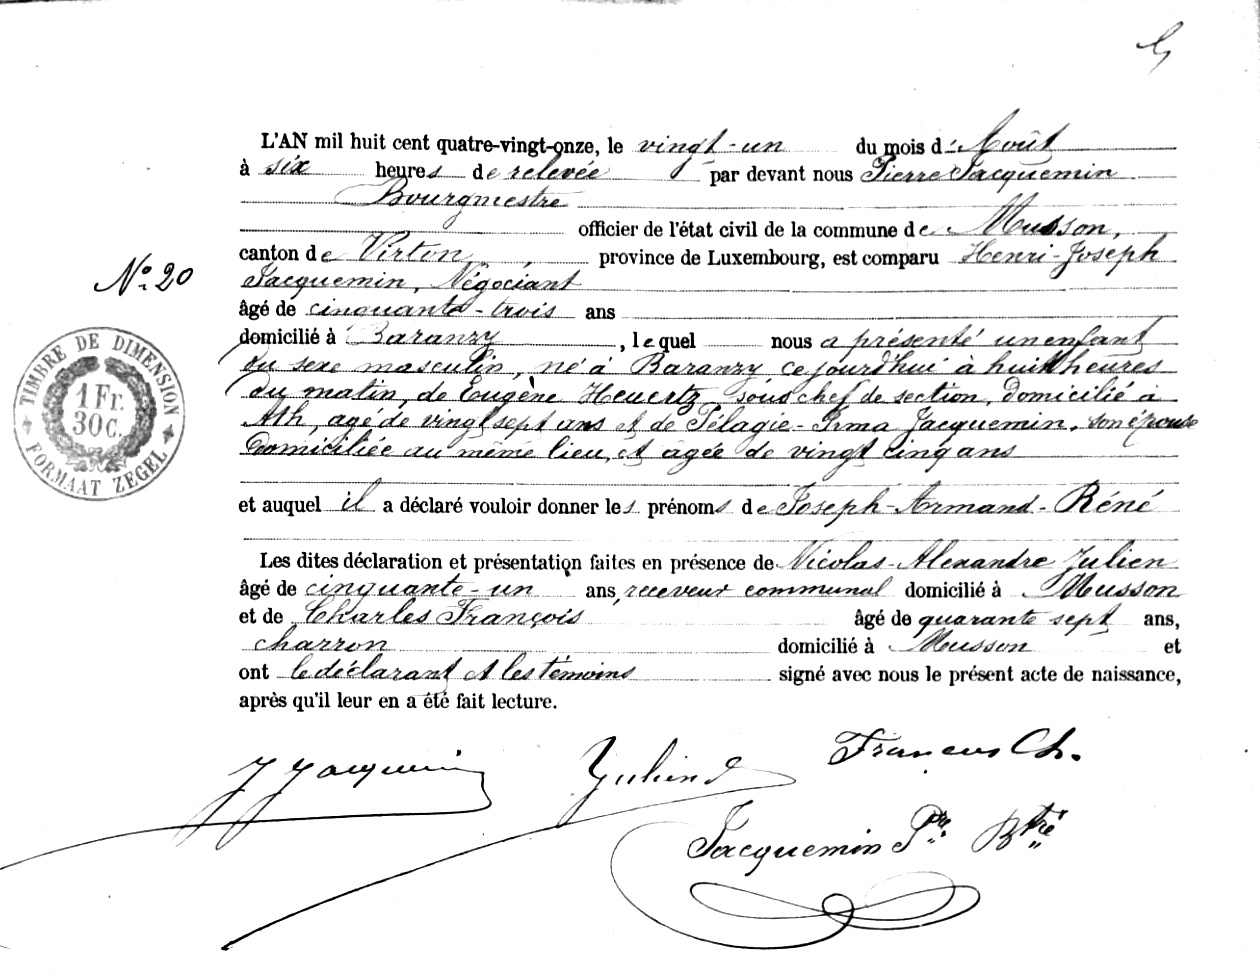 L'AN mil huit cent quatre-vingt-onze, le vingt-un du mois d'Août
à six heures de relevée par devant nous Pierre Jacquemin
Bourgmestre
officier de l'état civil de la commune de Musson,
canton de Virton, province de Luxembourg, est comparu Henri-Joseph
N° 20
Jacquemin, Négociant
âgé de cinquante-trois ans
domicilié à Baranzy, lequel nous a présenté un enfant
du sexe masculin, né à Baranzy cejourd'hui à huit heures
du matin, de Eugène Heuertz, sous chef de section, domicilié à
Ath, agé de vingt sept ans et de Pélagie-Irma Jacquemin, son épouse
domiciliée au même lieu, et agée de vingt cinq ans
et auquel il a déclaré vouloir donner les prénoms de Joseph-Armand-Réné
Les dites déclaration et présentation faites en présence de Nicolas-Alexandre Julien
âgé de cinquante-un ans, receveur communal domicilié à Musson
et de Charles François âgé de quarante sept ans,
charron domicilié à Musson et
ont le déclarant et les témoins signé avec nous le présent acte de naissance,
après qu'il leur en a été fait lecture.
TIMBRE DE DIMENSION
1 Fr.
30 C.
FORMAAT ZEGEL
J Jacquemin
Julien
François Ch.
Jacquemin Pre Btre